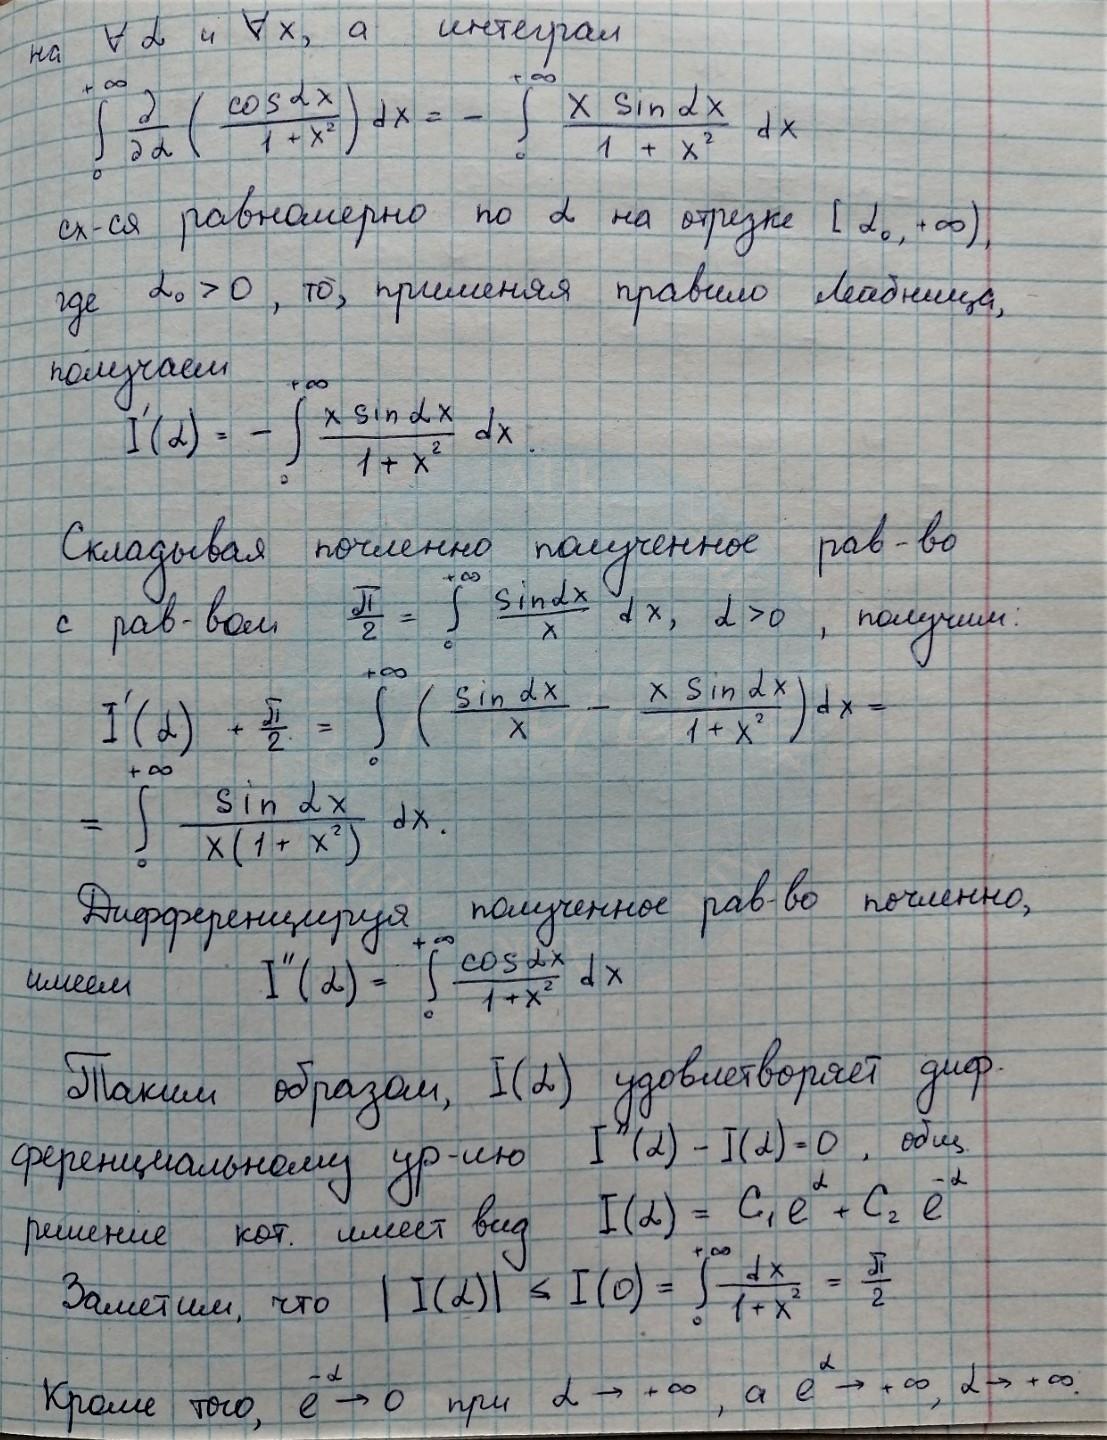 на ∀ α и ∀ x, а интеграл
∫₀^{+∞} ∂/∂α (cos αx / (1 + x²)) dx = − ∫₀^{+∞} (x sin αx / (1 + x²)) dx
сх-ся равномерно по α на отрезке [α₀, +∞),
где α₀ > 0, то, применяя правило Лейбница,
получаем
I'(α) = − ∫₀^{+∞} (x sin αx / (1 + x²)) dx.
Складывая почленно полученное рав-во
с рав-вом π/2 = ∫₀^{+∞} (sin αx / x) dx, α > 0, получим:
I'(α) + π/2 = ∫₀^{+∞} (sin αx / x − x sin αx / (1 + x²)) dx =
= ∫₀^{+∞} (sin αx / (x(1 + x²))) dx.
Дифференцируя полученное рав-во почленно,
имеем I''(α) = ∫₀^{+∞} (cos αx / (1 + x²)) dx
Таким образом, I(α) удовлетворяет диф-
ференциальному ур-ию I''(α) − I(α) = 0, общ.
решение кот. имеет вид I(α) = C₁ e^α + C₂ e^{−α}
Заметим, что |I(α)| ≤ I(0) = ∫₀^{+∞} (dx / (1 + x²)) = π/2
Кроме того, e^{−α} → 0 при α → +∞, а e^α → +∞, α → +∞.